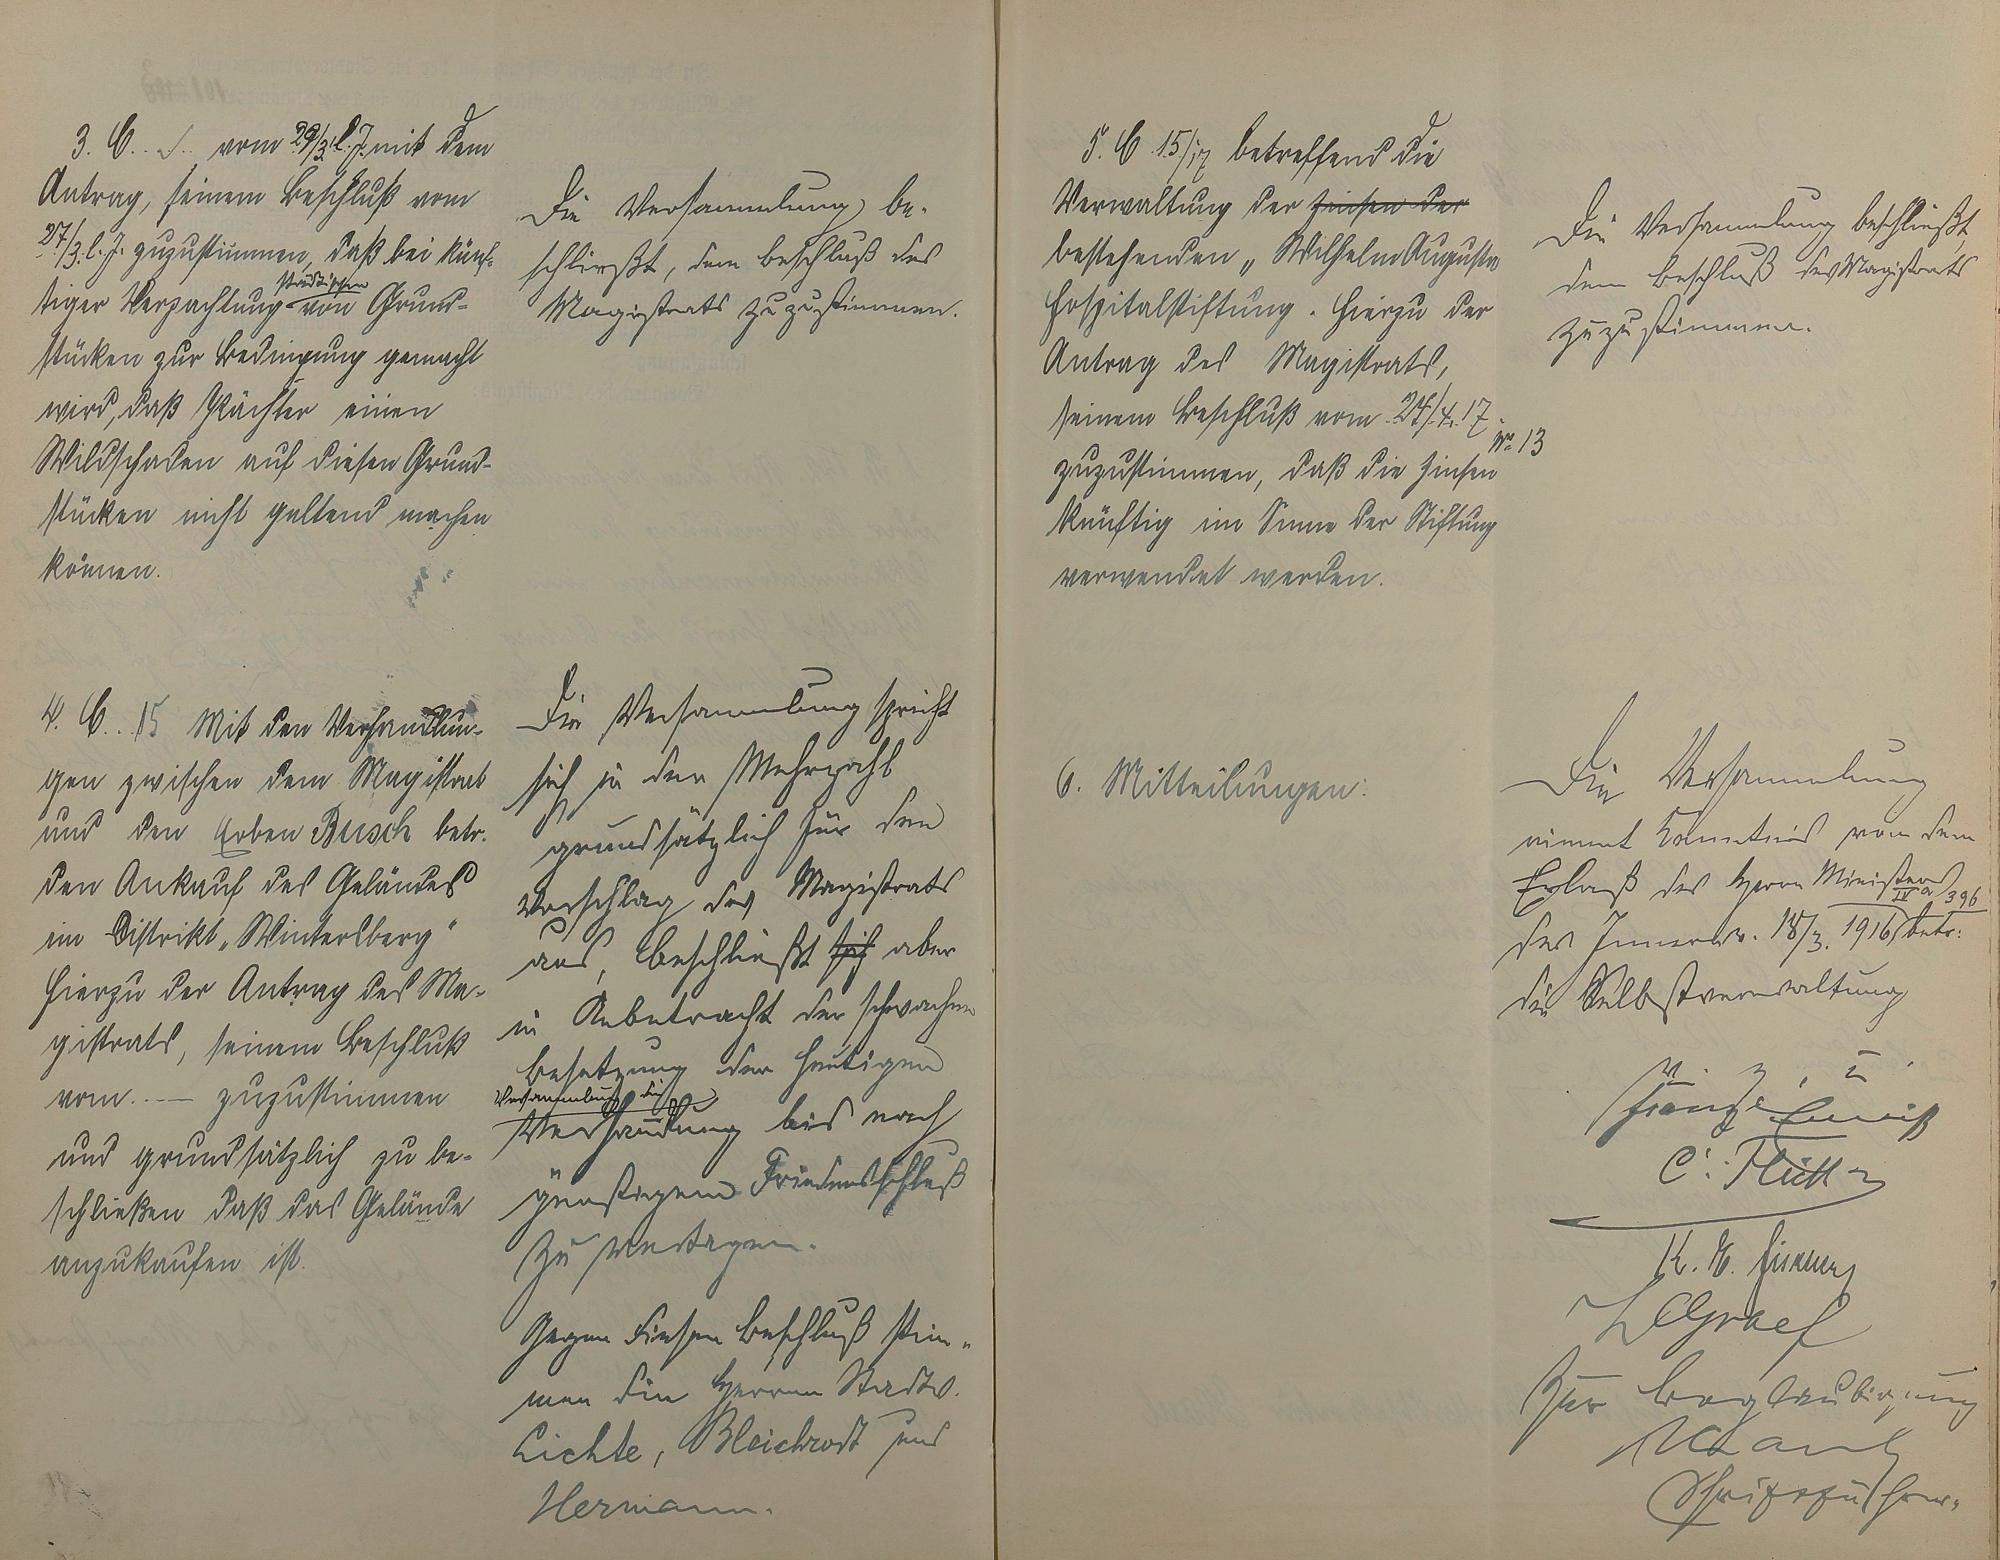 3. C. . . . vom 29/3. l. J. mit dem
Antrag, seinem Beschluß vom
27/3. l. J. zuzustimmen, daß bei künf-
tiger Verpachtung städtischen von Grund-
stücken zur Bedingung gemacht
wird, daß Pächter einen
Wildschaden auf diesen Grund-
stücken nicht geltend machen
können.
Die Versammlung be-
schließt, dem Beschluß des
Magistrats zuzustimmen.
4. C. . . 15 Mit den Verhandlun-
gen zwischen dem Magistrat
und den Erben Busch betr.
den Ankauf des Geländes
im Distrikt „Winterlberg"
hierzu der Antrag des Ma-
gistrats, seinem Beschluß
vom . . — zuzustimmen
und grundsätzlich zu be-
schließen daß das Gelände
anzukaufen ist.
Die Versammlung spricht
sich in der Mehrzahl
grundsätzlich für den
Vorschlag des Magistrats
aus, beschließt sich aber
in Anbetracht der schwachen
Besetzung der heutigen
Versammlung die
Verhandlung bis nach
günstigem Friedensschluß
zu vertagen.
Gegen diesen Beschluß stim-
men die Herren Stadtv.
Lichte, Bleichrodt und
Hermann.
5. C. 15/17 betreffend die
Verwaltung der Zinsen der
bestehenden „Wilhelm Augusta
Hospitalstiftung. Hierzu der
Antrag des Magistrats,
seinem Beschluß vom 24/4. 17.
No 13
zuzustimmen, daß die Zinsen
künftig im Sinne der Stiftung
verwendet werden.
Die Versammlung beschließt,
dem Beschluß des Magistrats
zuzustimmen.
6. Mitteilungen:
Die Versammlung
nimmt Kenntnis von dem
Erlaß des Herrn Ministers
IV a/396
des Innern v. 18/3. 1916 betr.
die Selbstverwaltung
v. g. u.
C.
K. E.
Zur Beglaubigung
Schriftführer.